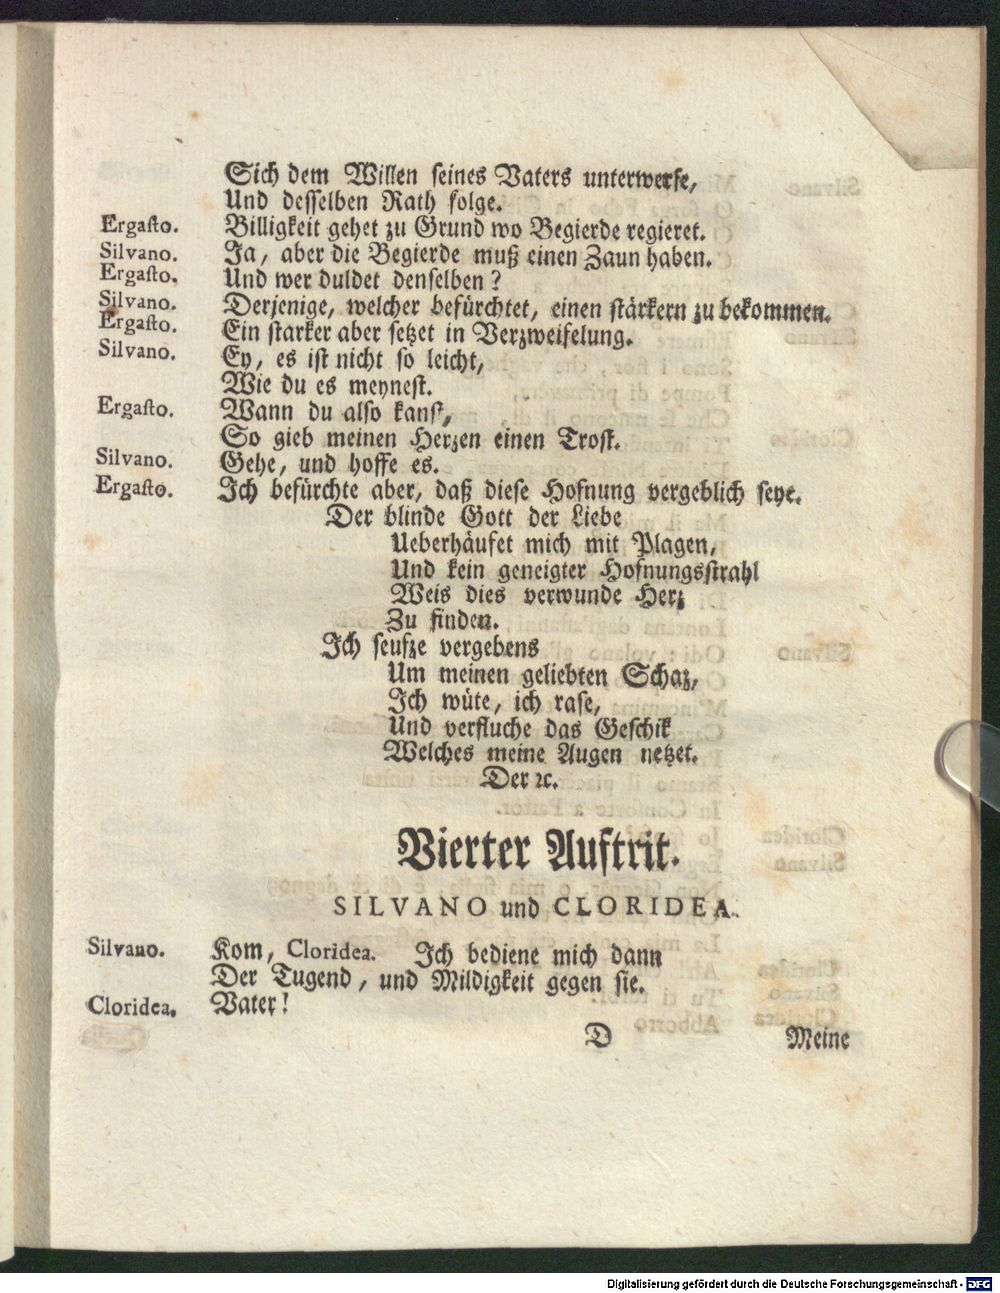 Sich dem Willen seines Vaters unterwerfe,
Und desselben Rath folge.
Ergasto. Billigkeit gehet zu Grund wo Begierde regieret.
Silvano. Ja, aber die Begierde muß einen Zaun haben.
Ergasto. Und wer duldet denselben?
Silvano. Derjenige, welcher befürchtet, einen stärkern zu bekommen.
Ergasto. Ein starker aber setzet in Verzweifelung.
Silvano. Ey, es ist nicht so leicht,
Wie du es meynest.
Ergasto. Wann du also kanst,
So gieb meinen Herzen einen Trost.
Silvano. Gehe, und hoffe es.
Ergasto. Ich befürchte aber, daß diese Hofnung vergeblich seye.
Der blinde Gott der Liebe
Ueberhäufet mich mit Plagen,
Und kein geneigter Hofnungsstrahl
Weis dies verwunde Herz
Zu finden.
Ich seufze vergebens
Um meinen geliebten Schaz,
Ich wüte, ich rase,
Und verfluche das Geschik
Welches meine Augen netzet.
Der ꝛc.
Vierter Auftrit.
SILVANO und CLORIDEA.
Silvano. Kom, Cloridea. Ich bediene mich dann
Der Tugend, und Mildigkeit gegen sie.
Cloridea. Vater!
D Meine
Digitalisierung gefördert durch die Deutsche Forschungsgemeinschaft - DFG